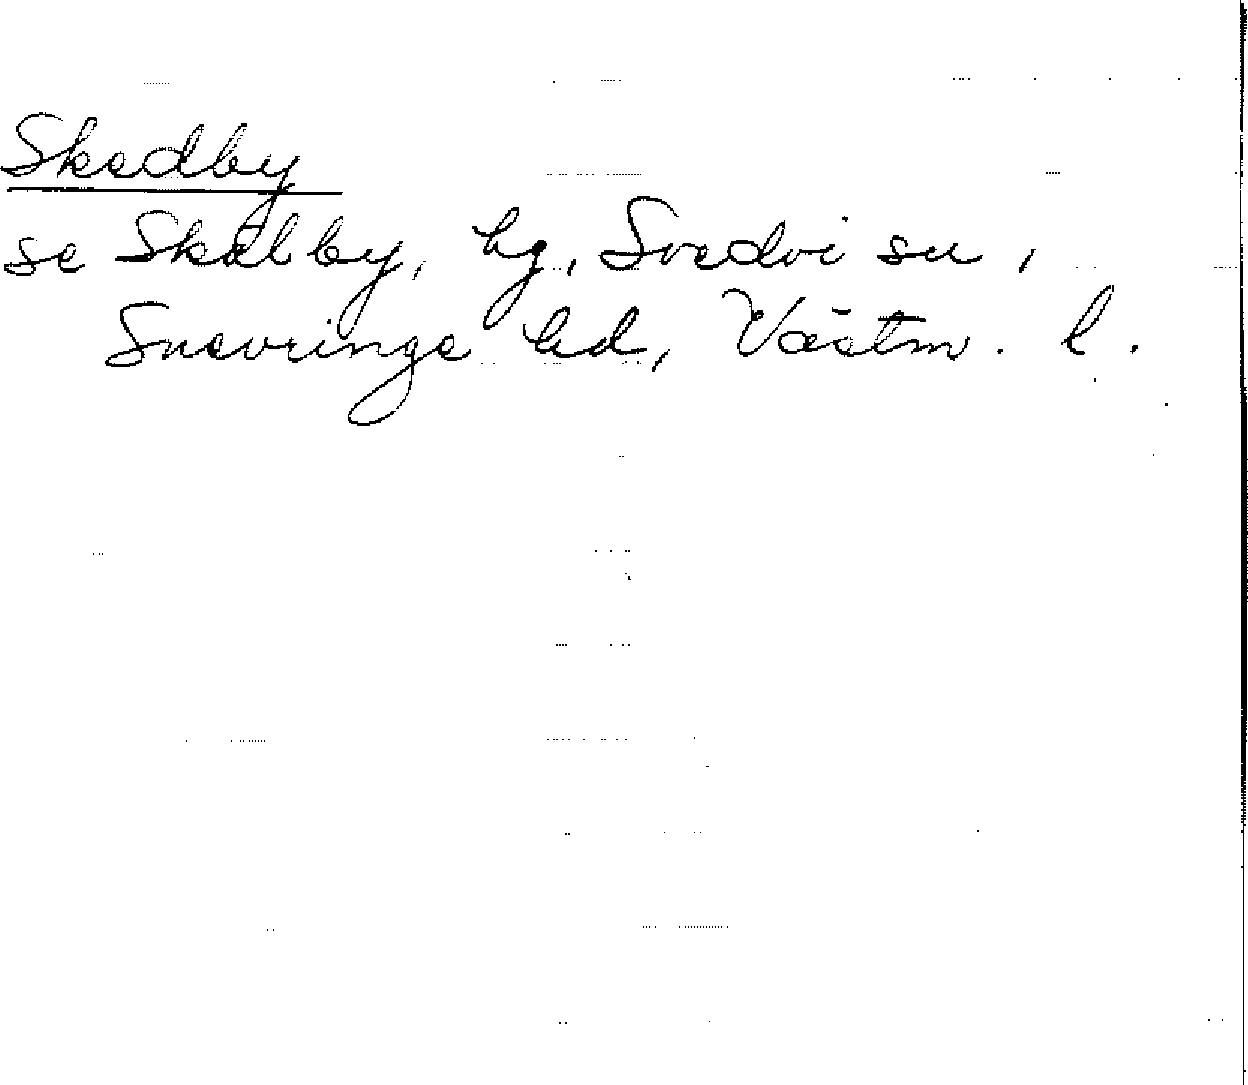 Skedby
se Skälby, hg, Svedvi sn,
Snevringe hd, Västm. l.